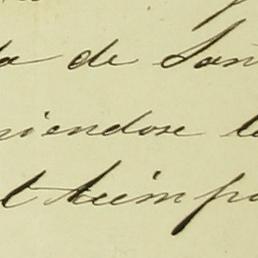 da de San
niendose la
el tiempo